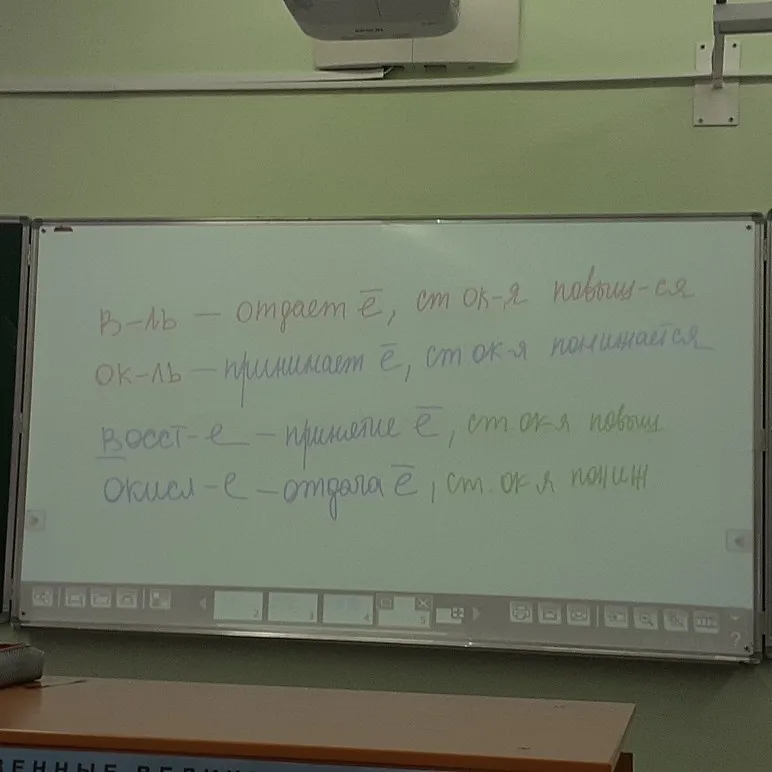 EPSON
в-ль — отдает ē, ст ок-я повыш-ся
ок-ль — принимает ē, ст ок-я понижается
Восст-е — принятие ē, ст ок-я повыш
Окисл-е — отдача ē, ст. ок-я пониж
2 3 4 5
?
ВЕННЫЕ ВЕЛИЧ